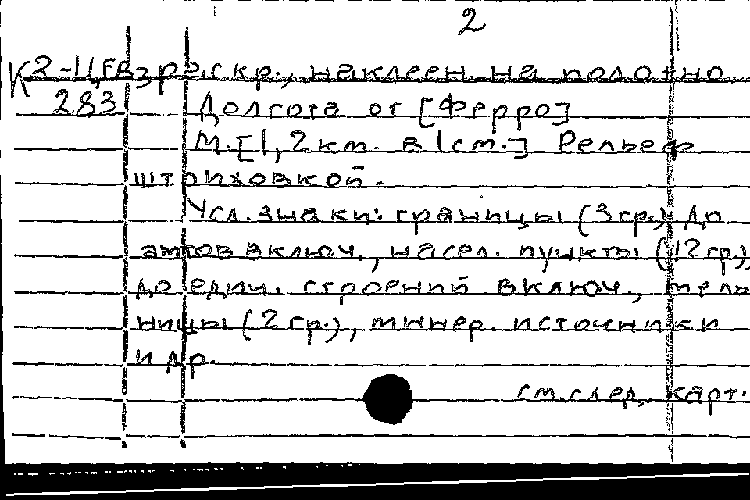 2
К2-Ц,Ев раскр., наклеен. на полотно.
283 Долгота от [Ферро]
М.[1,2км. в 1см.] Рельеф
штриховкой.
Усл. знаки: границы (3гр.) до
амтов включ., насел. пункты (12гр.),
до един. строений включ., мель
ницы (2гр.), минер. источники
и др.
см. след. карт.